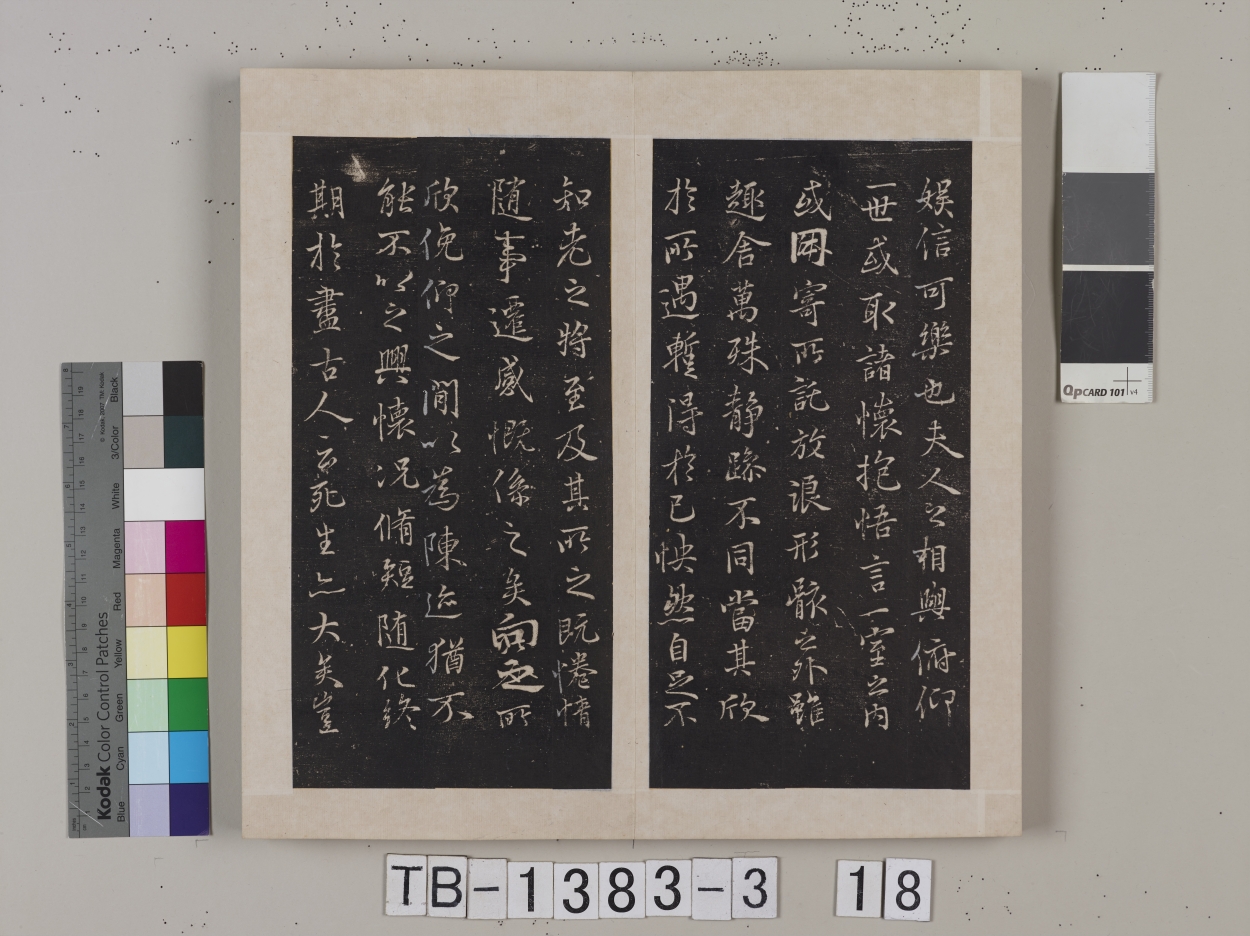 娯信可樂也夫人之相與俯仰
一世或取諸懷抱悟言一室之内
或因寄所託放浪形骸之外雖
趣舍萬殊静躁不同當其欣
於所遇蹔得於己怏然自足不
知老之將至及其所之既惓情
随事遷感慨係之矣向之所
欣俛仰之閒以為陳迹猶不
能不以之興懷况脩短随化終
期於盡古人云死生亦大矣豈
Kodak Color Control Patches
© Kodak, 2007 TM: Kodak
Blue
Cyan
Green
Yellow
Red
Magenta
White
3/Color
Black
QPCARD 101 v4
TB-1383-3 18